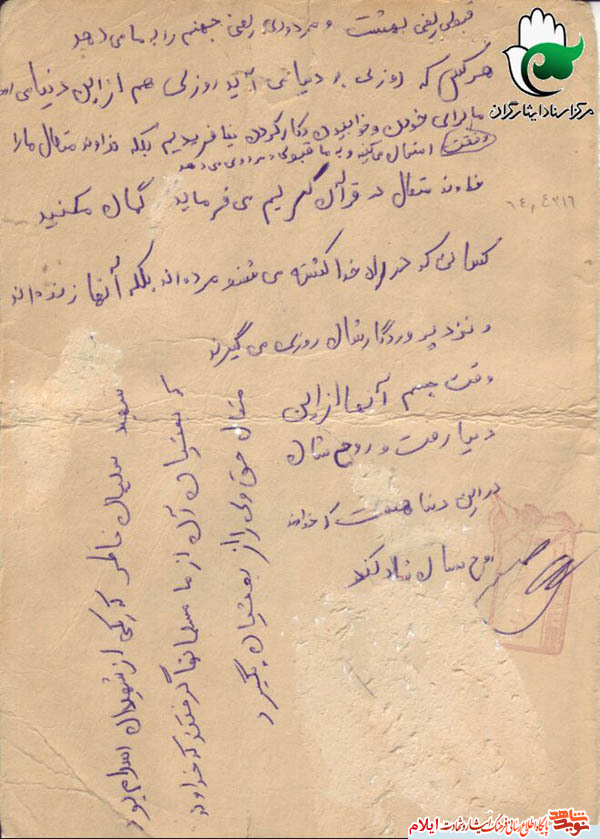 قبولی یعنی بهشت و مردودی یعنی جهنم را به ما می دهد
هر کس که روزی به دنیا می آید روزی هم از این دنیا می رود
ما برای خوردن و خوابیدن و کار کردن نیافریدیم بلکه خداوند متعال ما را
وقتی امتحان میکند و به ما قبولی و مردودی می دهد
خداوند متعال در قرآن کریم می فرماید گمان مکنید
کسانی که در راه خدا کشته می شوند مرده اند بلکه آنها زنده اند
و نزد پروردگارشان روزی می گیرند
وقت جسم آنها از این
دنیا رفت و روح شان
در این دنیا هست که خداوند
روح شان شاد کند
شهید سلیمان خاطر که یکی از شهیدان اسلام بود
که بعثیان آن از ما مسلمانها گرفتند که خداوند
متعال حق وی را از بعثیان بگیرد
۶۴,۴۳۱۶
مرکز اسناد ایثارگران
نوید شاهد
پایگاه اطلاع رسانی فرهنگ ایثار و شهادت ایلام